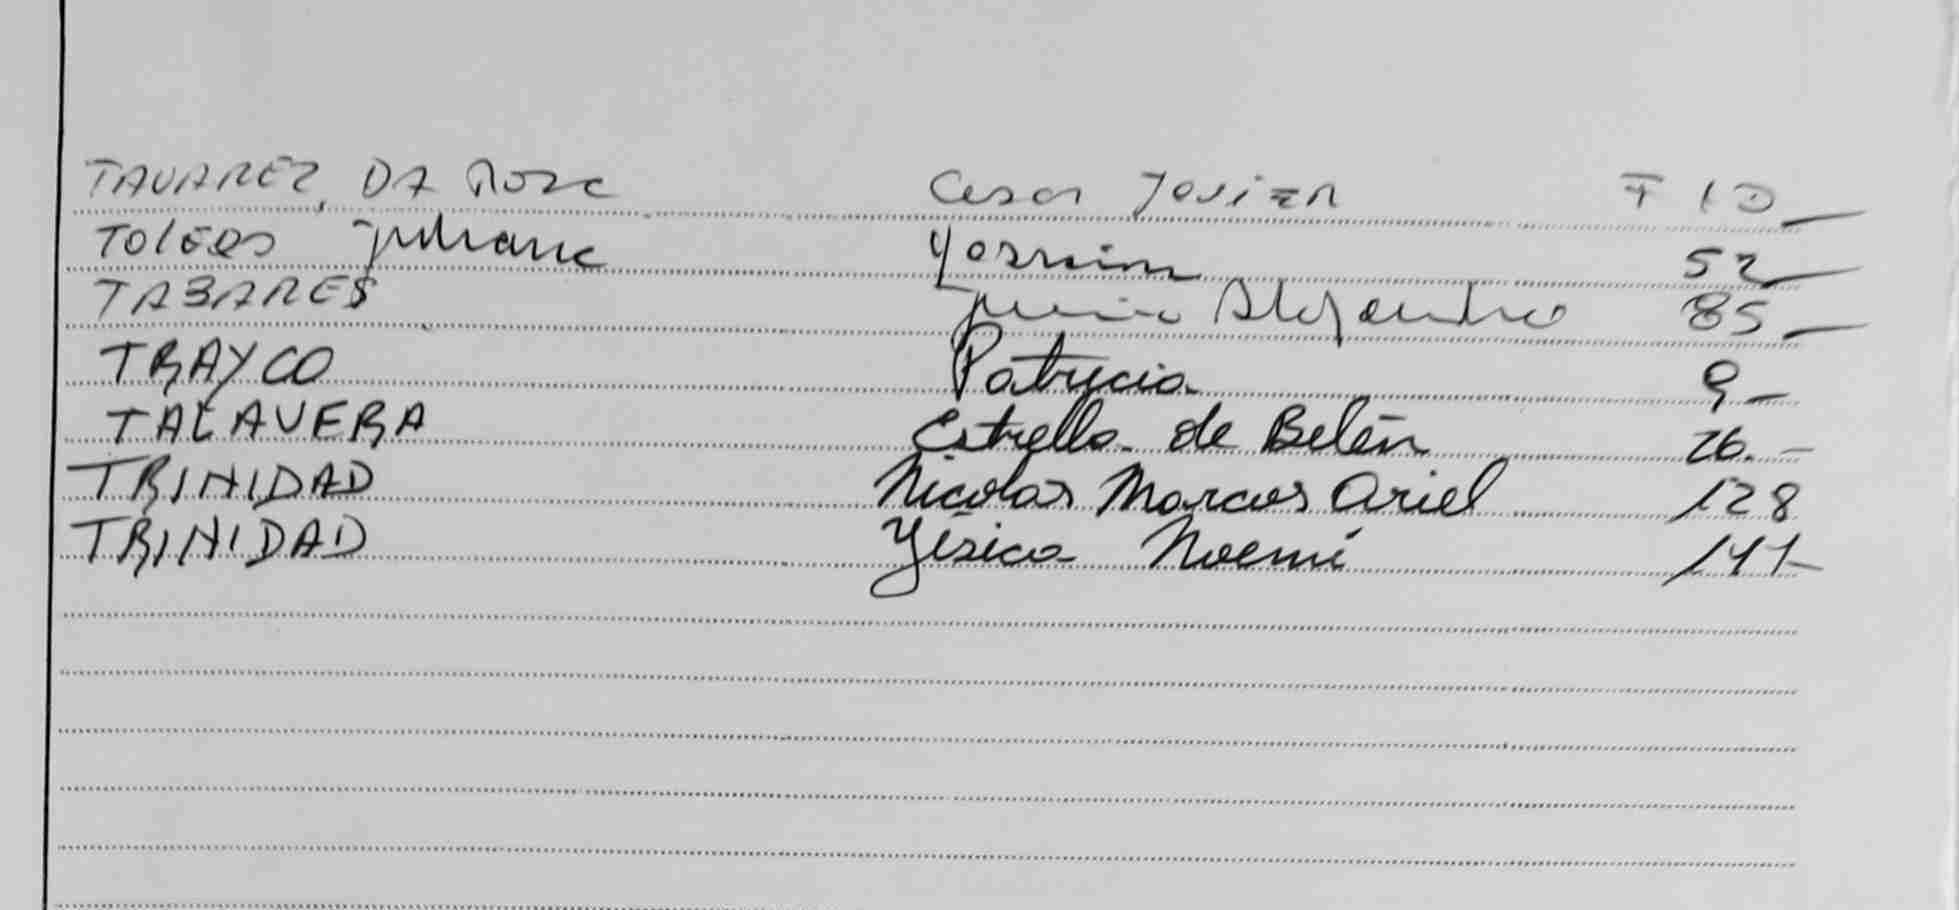 TAVAREZ, DA Rosa Cesar Javier F 10
TOLEDO Juliana Yasmin 52
TABARES Junio Alejandro 85
TRAYCO Patrycia 9
TALAVERA Estrella de Belén 26.
TRINIDAD Nicolas Marcos Ariel 128
TRINIDAD Yésica Noemí 141